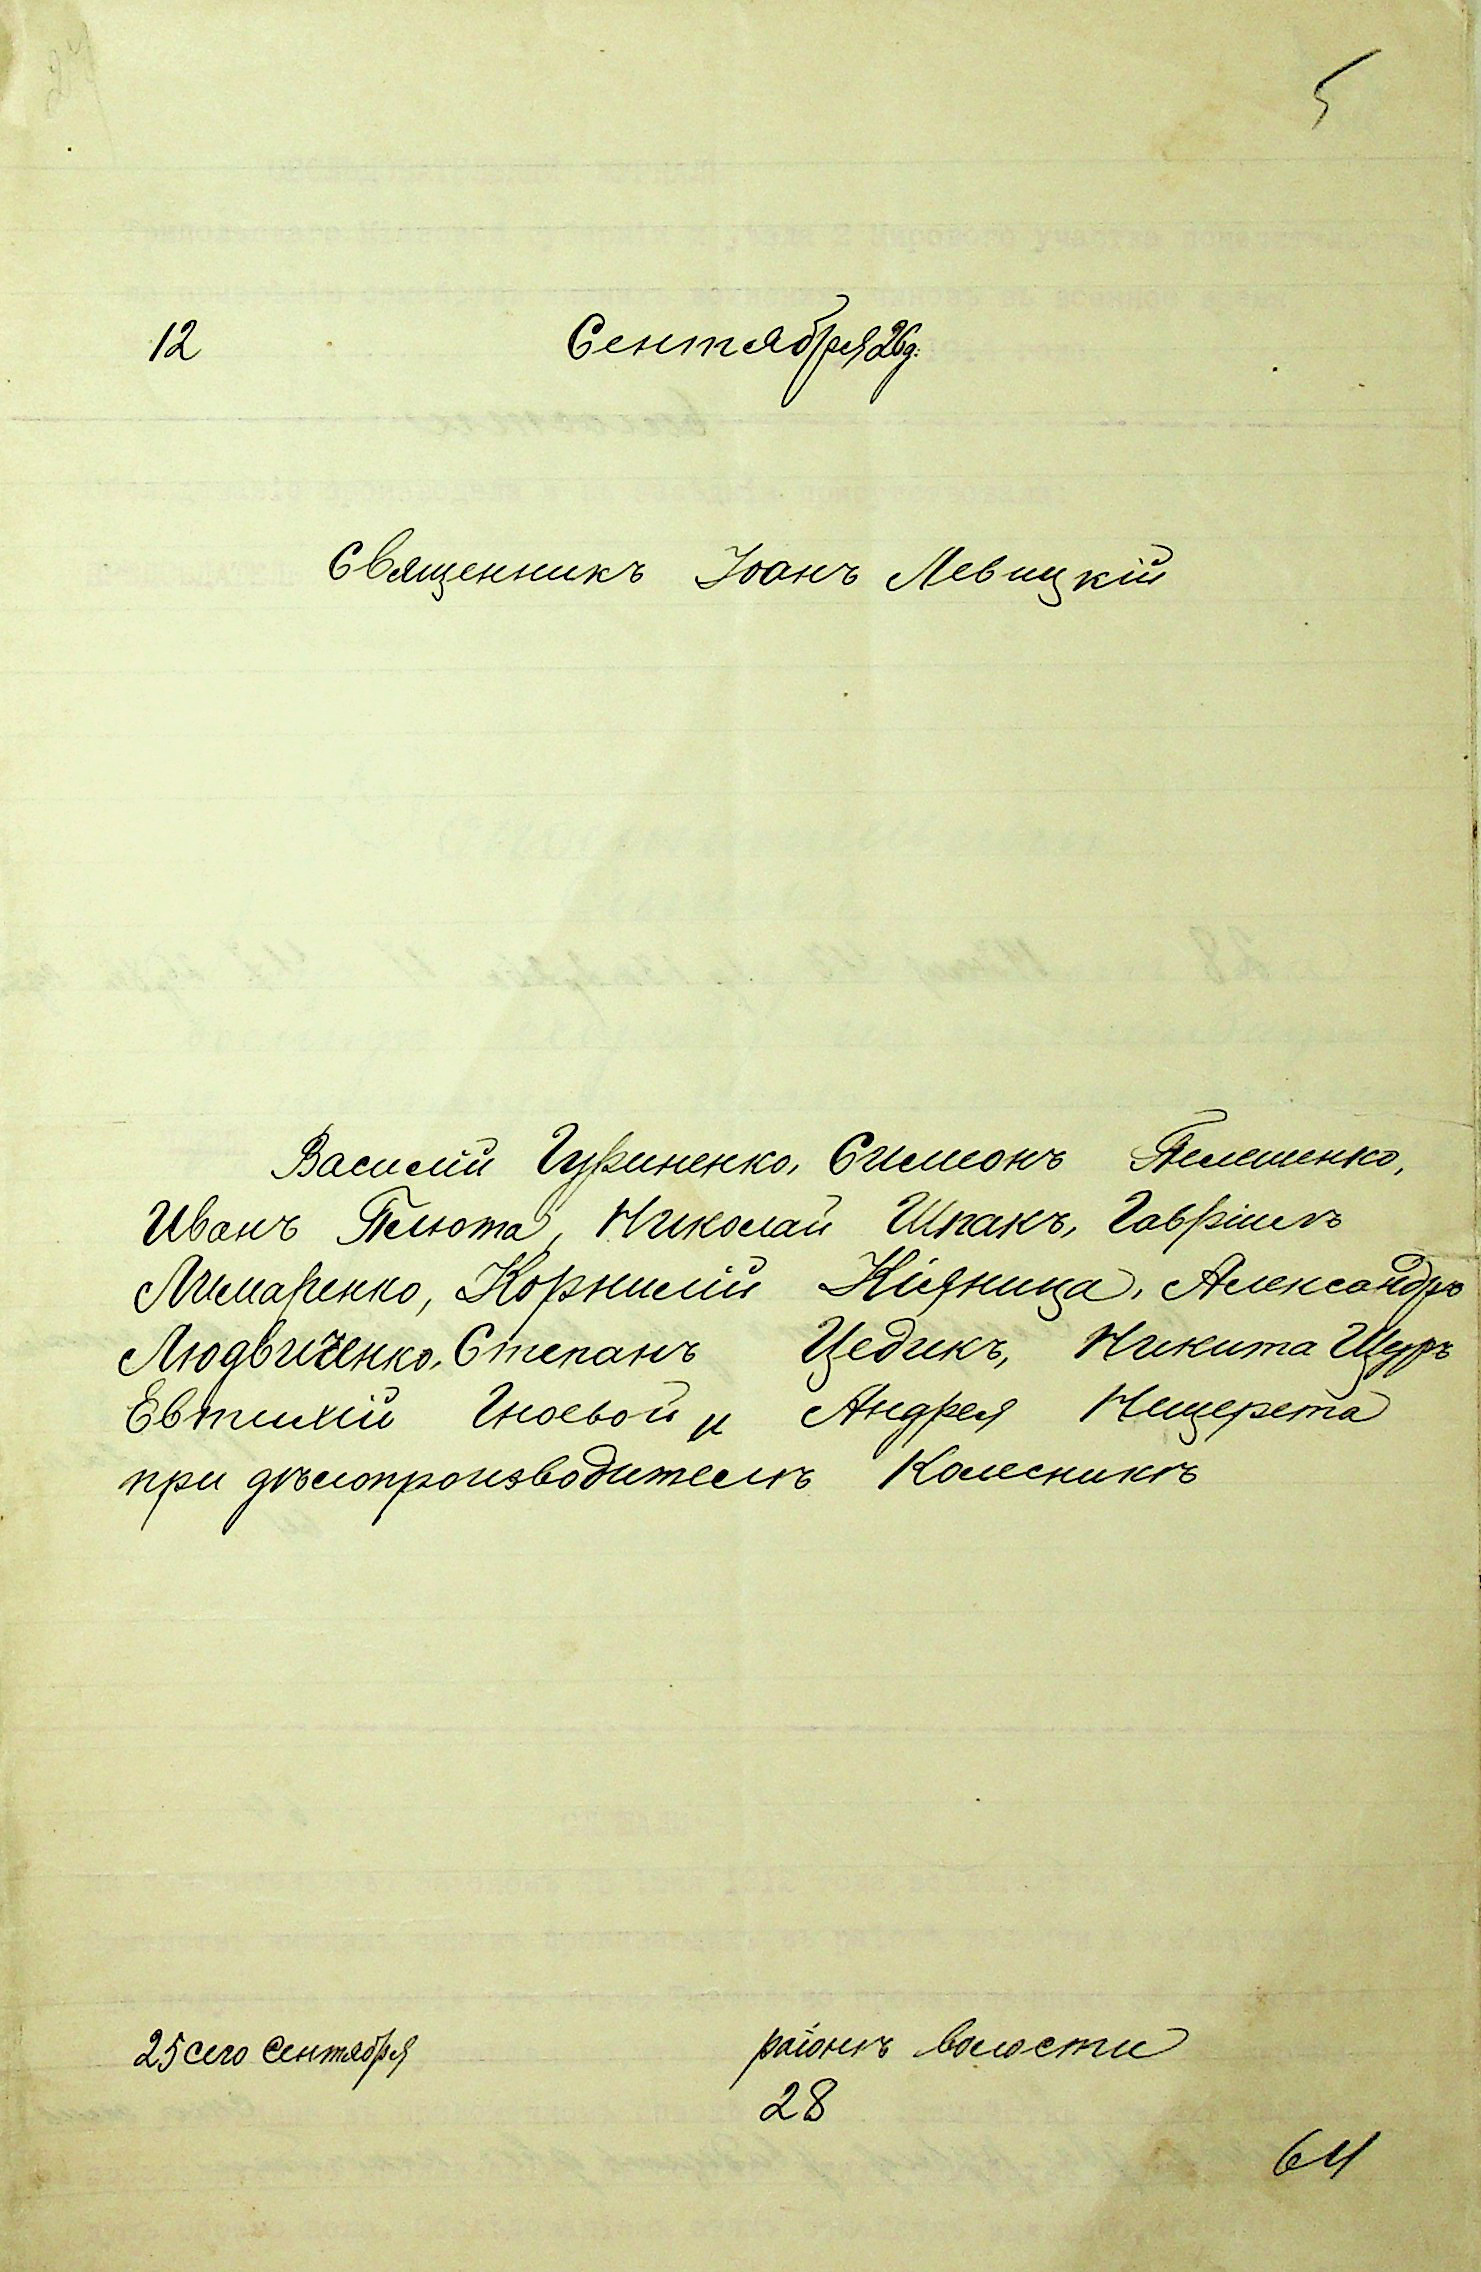 5
12 Сентября 26 д.
Священникъ Іоанъ Левицкій
Василій Гуриненко, Симионъ Телешенко,
Иванъ Пелюта, Николай Шпакъ, Гавріилъ
Лимаренко, Корнилій Кіяница, Александръ
Людвиченко, Степанъ Цедикъ, Никита Щуръ
Евтихій Гноевой и Андрея Нещерета
при дѣлопроизводителѣ Колесникѣ
25 сего Сентября районѣ волости
28
64